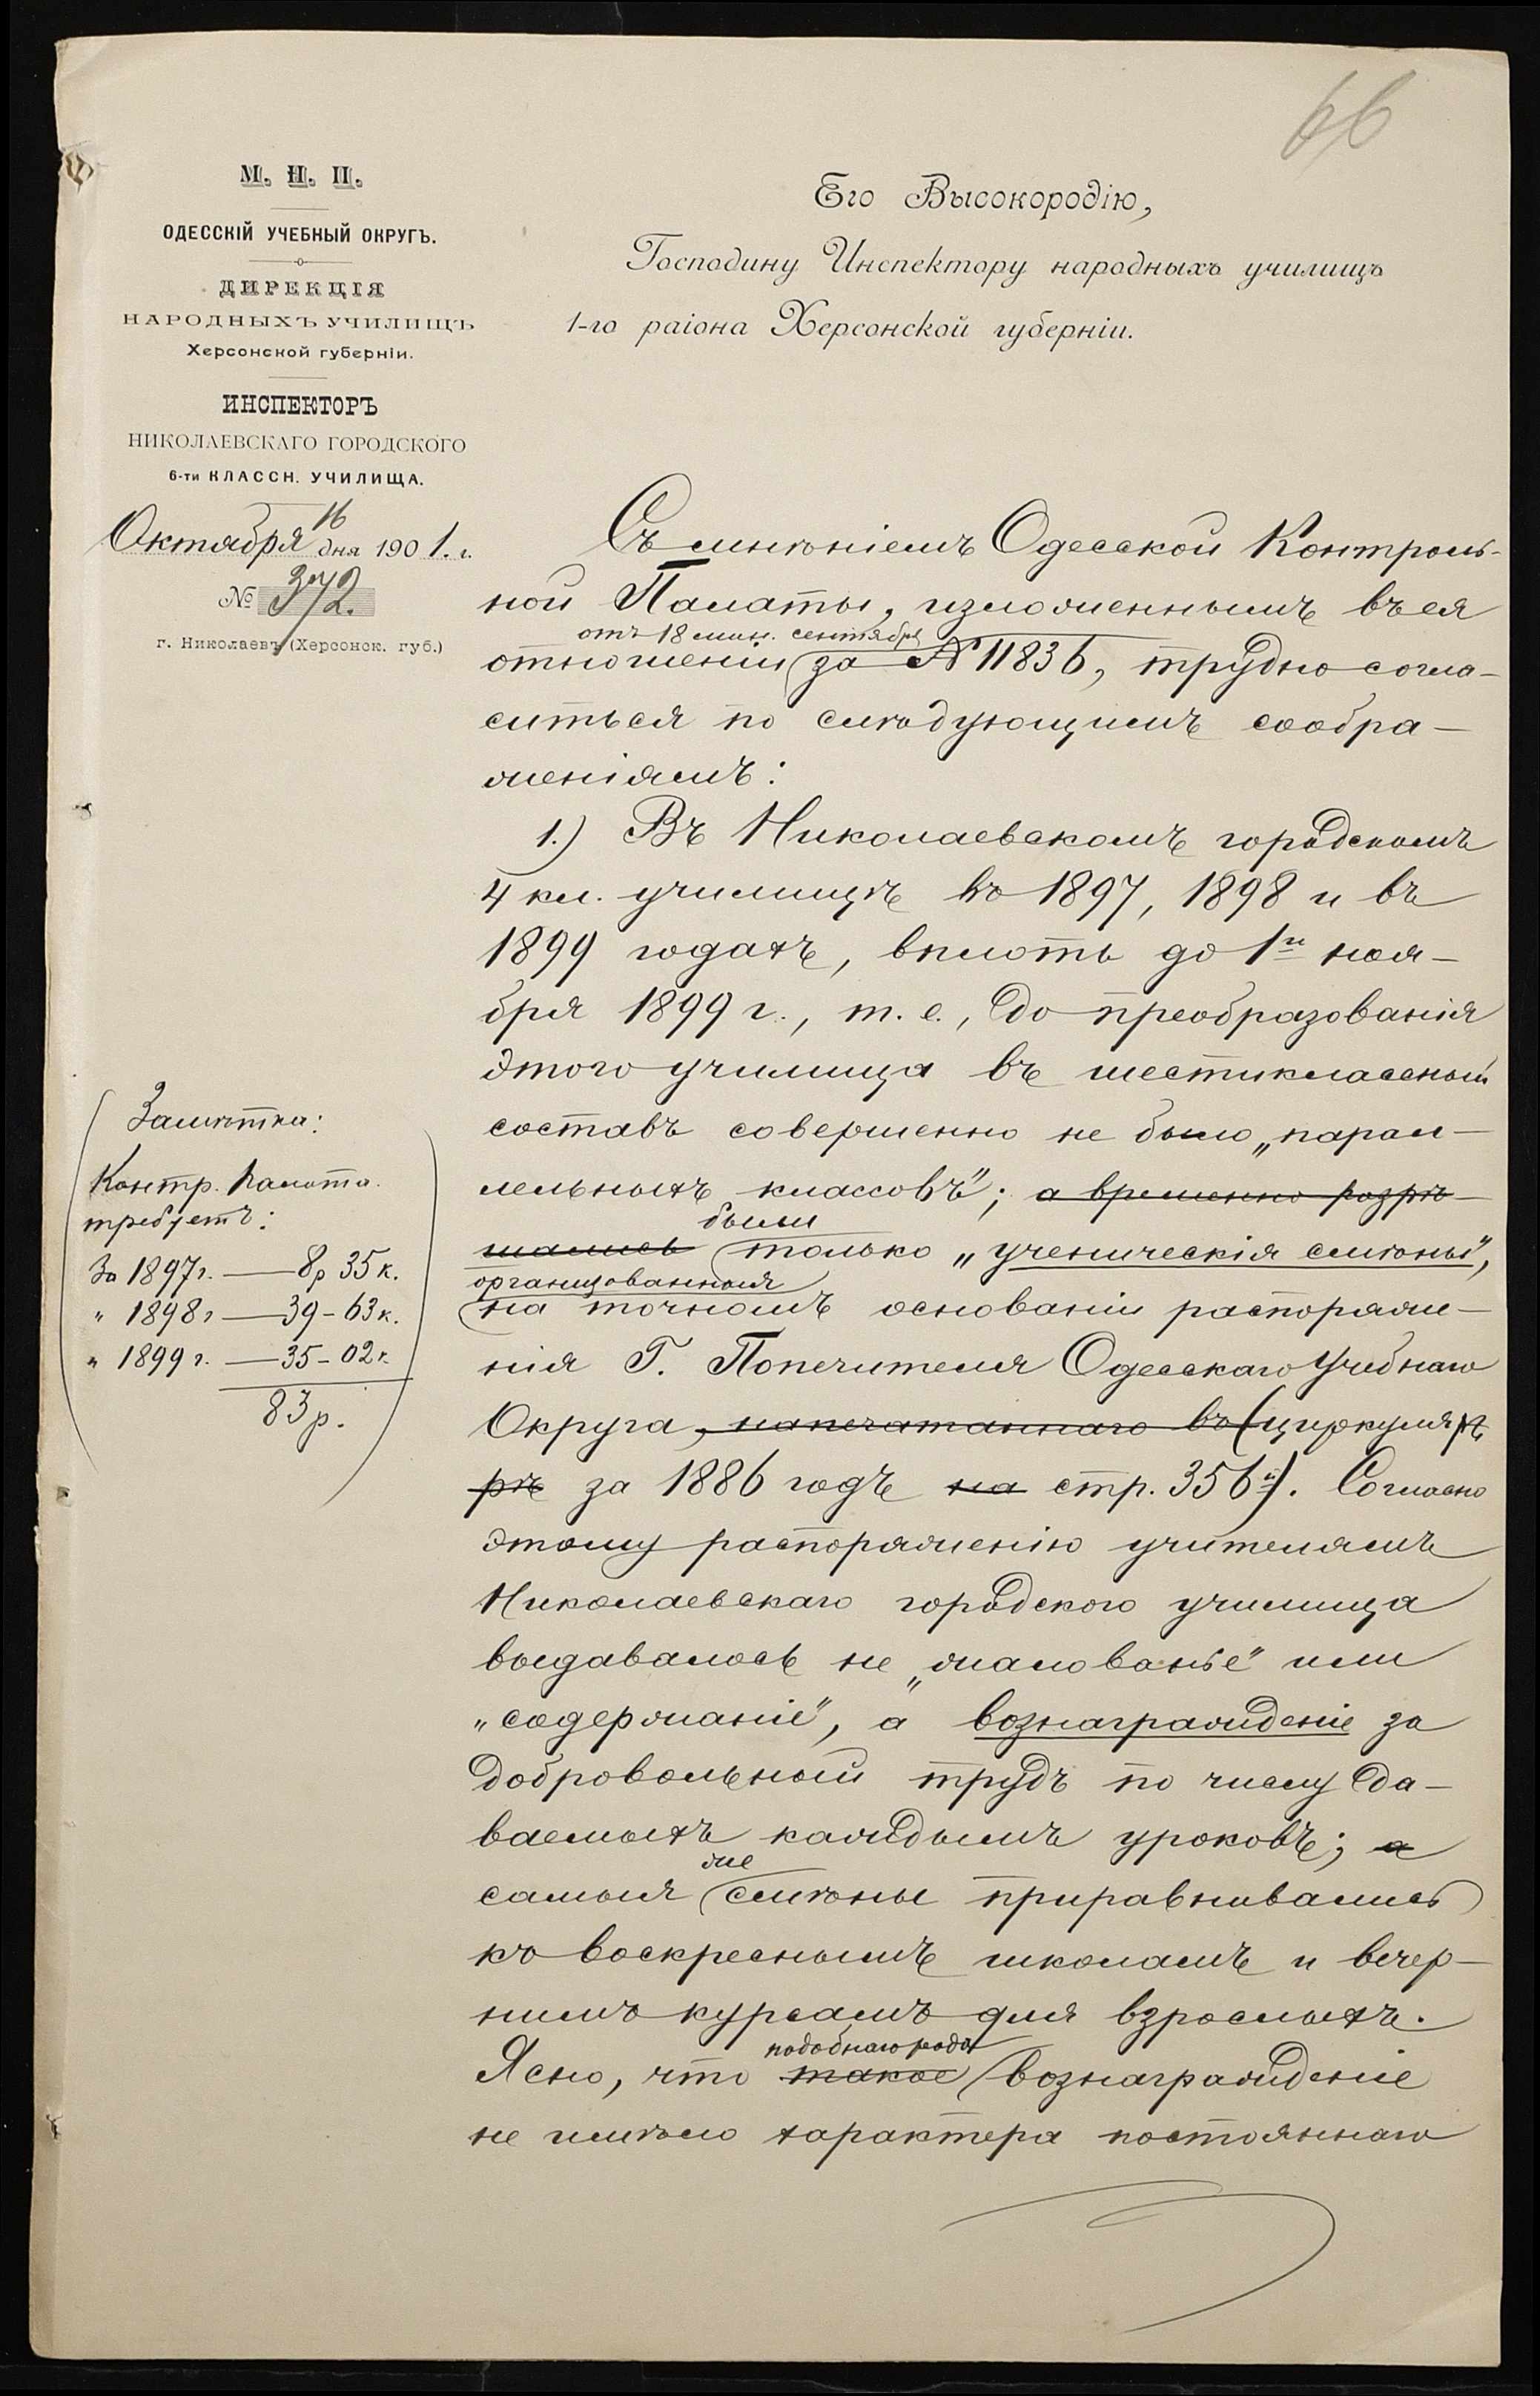 66
М. Н. П.
ОДЕССКІЙ УЧЕБНЫЙ ОКРУГЪ.
ДИРЕКЦІЯ
НАРОДНЫХЪ УЧИЛИЩЪ
Херсонской губерніи.
ИНСПЕКТОРЪ
НИКОЛАЕВСКАГО ГОРОДСКОГО
6-ти КЛАССН. УЧИЛИЩА.
Октября 16 дня 1901. г.
№ 372.
г. Николаевъ (Херсонск. губ.)
Его Высокородію,
Господину Инспектору народныхъ училищъ
1-го раіона Херсонской губерніи.
Съ мнѣніемъ Одесской Контроль-
ной Палаты, изложеннымъ въ ея
отъ 18 мин. сентября
отношеніи за № 11836, трудно согла-
ситься по слѣдующимъ сообра-
женіямъ:
1.) Въ Николаевскомъ городскомъ
4 кл. училищѣ въ 1897, 1898 и въ
1899 годахъ, вплоть до 1го ноя-
бря 1899 г., т. е., до преобразованія
этого училища въ шестиклассный
составъ совершенно не было „парал-
лельныхъ классовъ"; а временно разрѣ-
были
шались только „ученическія смѣны",
организованныя
на точномъ основаніи распоряже-
нія Г. Попечителя Одесскаго Учебнаго
Округа, напечатаннаго въ (циркуляръ
рѣ за 1886 годъ на стр. 356я). Согласно
этому распоряженію учителямъ
Николаевскаго городского училища
выдавалось не „жалованье" или
„содержаніе", а вознагражденіе за
добровольный трудъ по числу да-
ваемыхъ каждымъ уроковъ; а
же
самыя смѣны приравнивались
къ воскреснымъ школамъ и вечер-
нимъ курсамъ для взрослыхъ.
подобнаго рода
Ясно, что такое вознагражденіе
не имѣло характера постояннаго
Замѣтка:
Контр. Палата
требуетъ:
За 1897 г. — 8р 35 к.
" 1898 г — 39 - 63 к.
" 1899 г. — 35 - 02 к.
83 р.